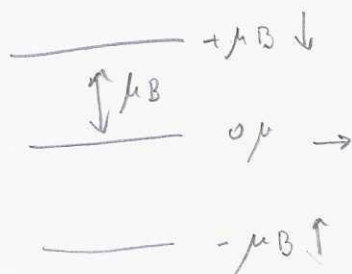 +μB ↓
μB
0μ →
-μB ↑